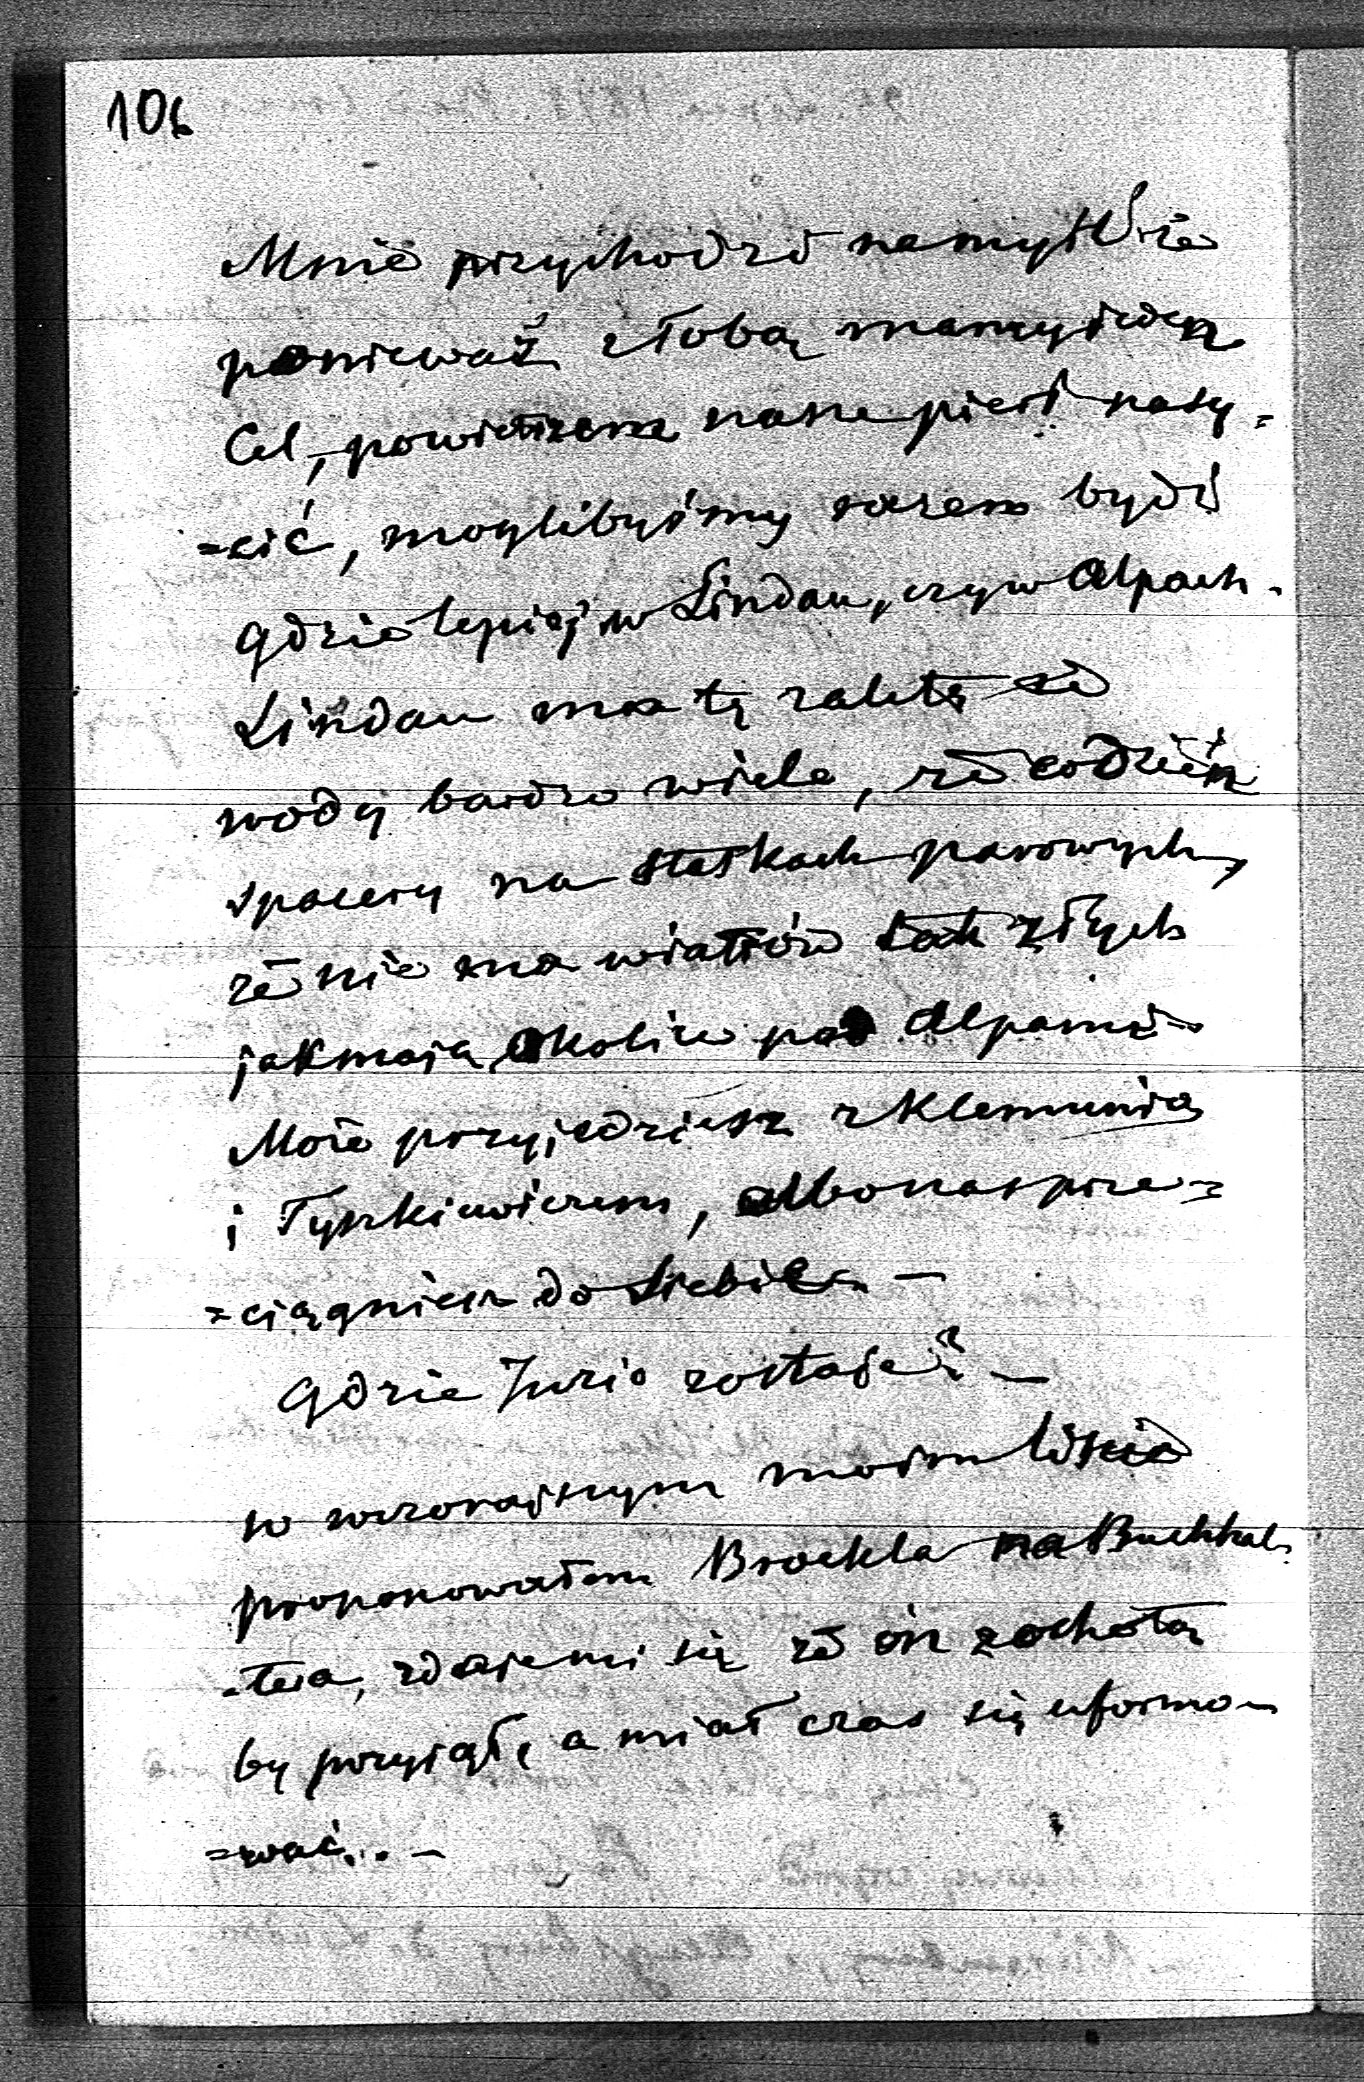 106
Mnie przychodzi na myśl że
ponieważ z Tobą mamy jeden
Cel, powietrzem nasze pierś nasy=
=cić, moglibyśmy razem bydź
gdzie lepiej w Lindau, czy w Alpach.
Lindau ma tę zaletę że
wody bardzo wiele, że codzień
spacery na statkach parowych,
że nie ma wiatrów tak złych
jak mają okolice pod Alpami
Może przyjedziesz z Klemunią
i Tyszkiewiczem, albo nas prze=
=ciągniesz do siebie —
Gdzie Juzio zostaje? —
w wczorajszym moim liście
proponowałem Brockla na Buchhal
-tera, zdaje mi się że on z ochotą
by przyjął, a miał czas się uformo
=wać.. —